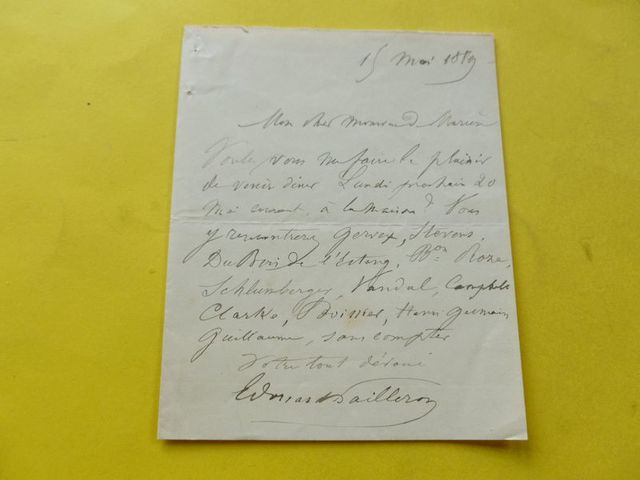 15 Mai 1889
Mon cher
Voulez vous me faire le plaisir
de venir diner Lundi prochain 20
Mai courant, à la maison ? Vous
y rencontrerez Gervex, Stevens,
Du Bois de l'Estang, Bon Roze,
Schlumberger, Vandal, Campbell
Clarke, Henri Germain
Guillaume, sans compter
Votre tout dévoué
Edouard Pailleron